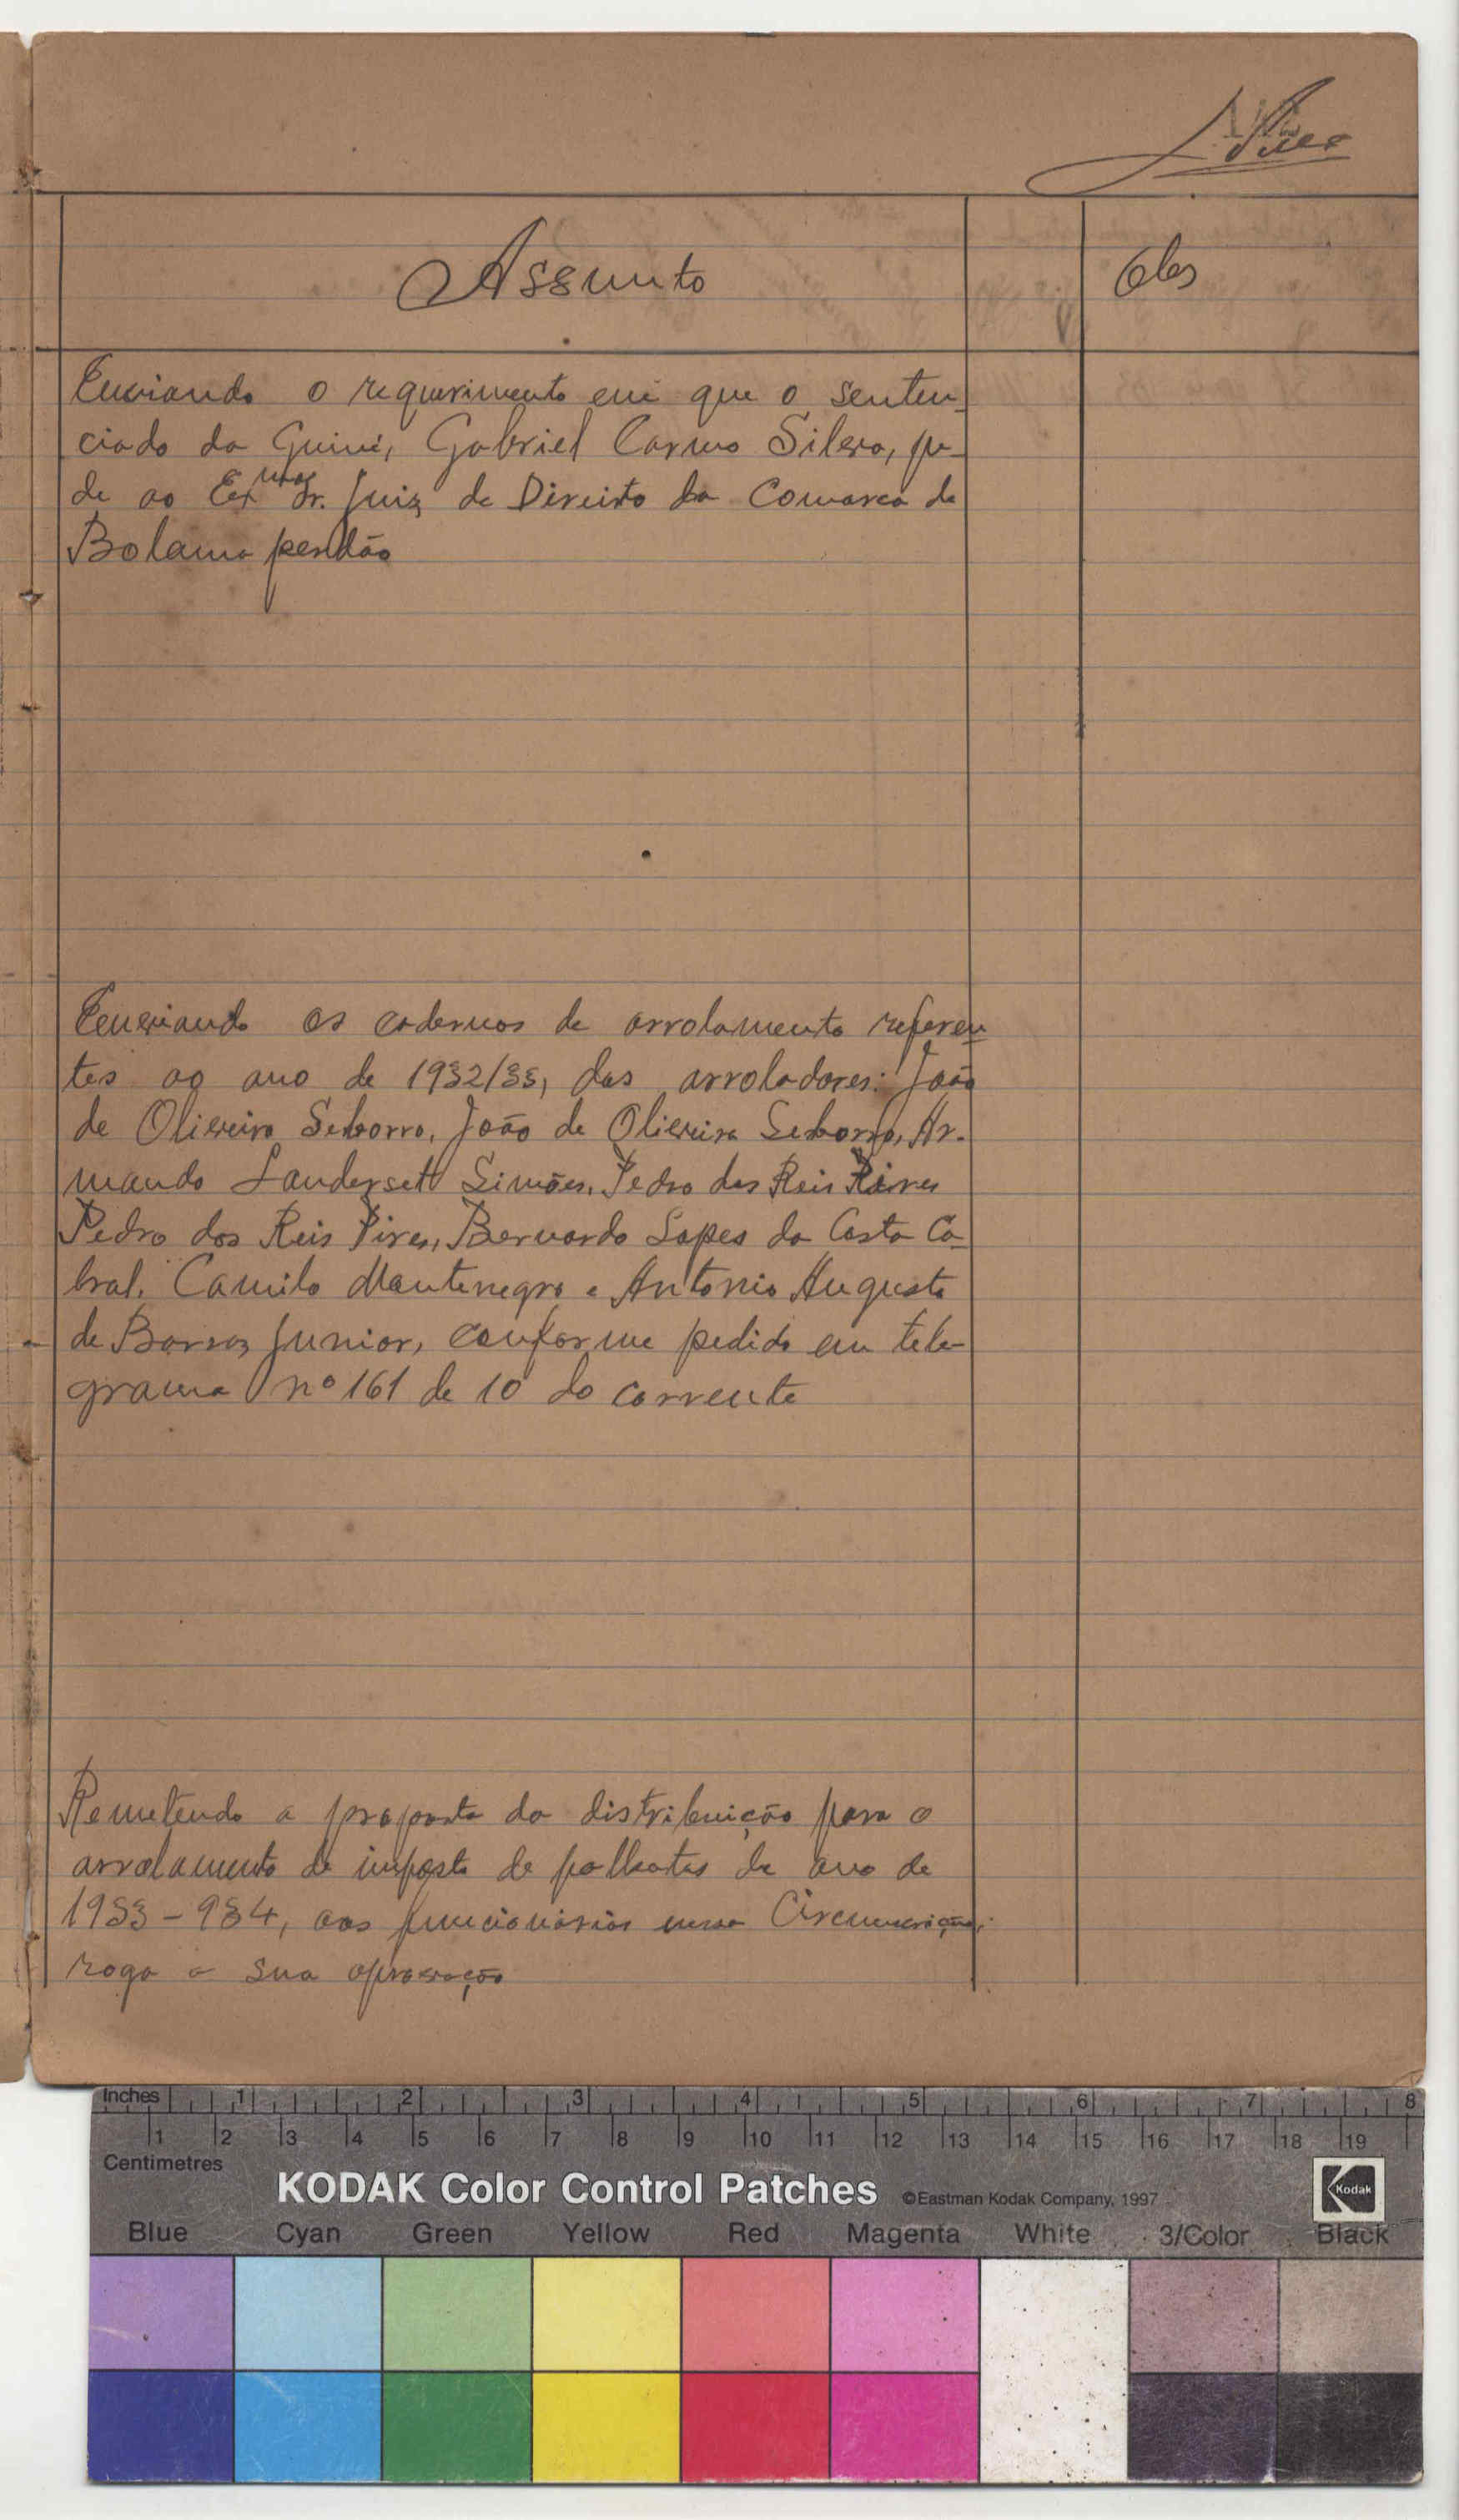 Assunto
Obs
Enviando o requerimento em que o senten-
ciado da Guiné, Gabriel Carmo Silva, pe-
de ao Exmo Sr. Juiz de Direito da Comarca de
Bolama perdão
Enviando os cadernos de arrolamento referen-
tes ao ano de 1932/33, dos arroladores: João
de Oliveira Seborro, João de Oliveira Seborro, Ar-
mando Landersett Simões, Pedro dos Reis Pires
Pedro dos Reis Pires, Bernardo Lopes da Costa Ca-
bral, Camilo Montenegro e Antonio Augusto
de Barros Junior, conforme pedido em tele-
grama nº 161 de 10 do corrente
Remetendo a proposta da distribuição para o
arrolamento de imposto de palhotas do ano de
1933-934, aos funcionários Circunscrição,
roga a sua aprovação
Inches 1 2 3 4 5 6 7 8
1 2 3 4 5 6 7 8 9 10 11 12 13 14 15 16 17 18 19
Centimetres
KODAK Color Control Patches ©Eastman Kodak Company, 1997 Kodak
Blue Cyan Green Yellow Red Magenta White 3/Color Black